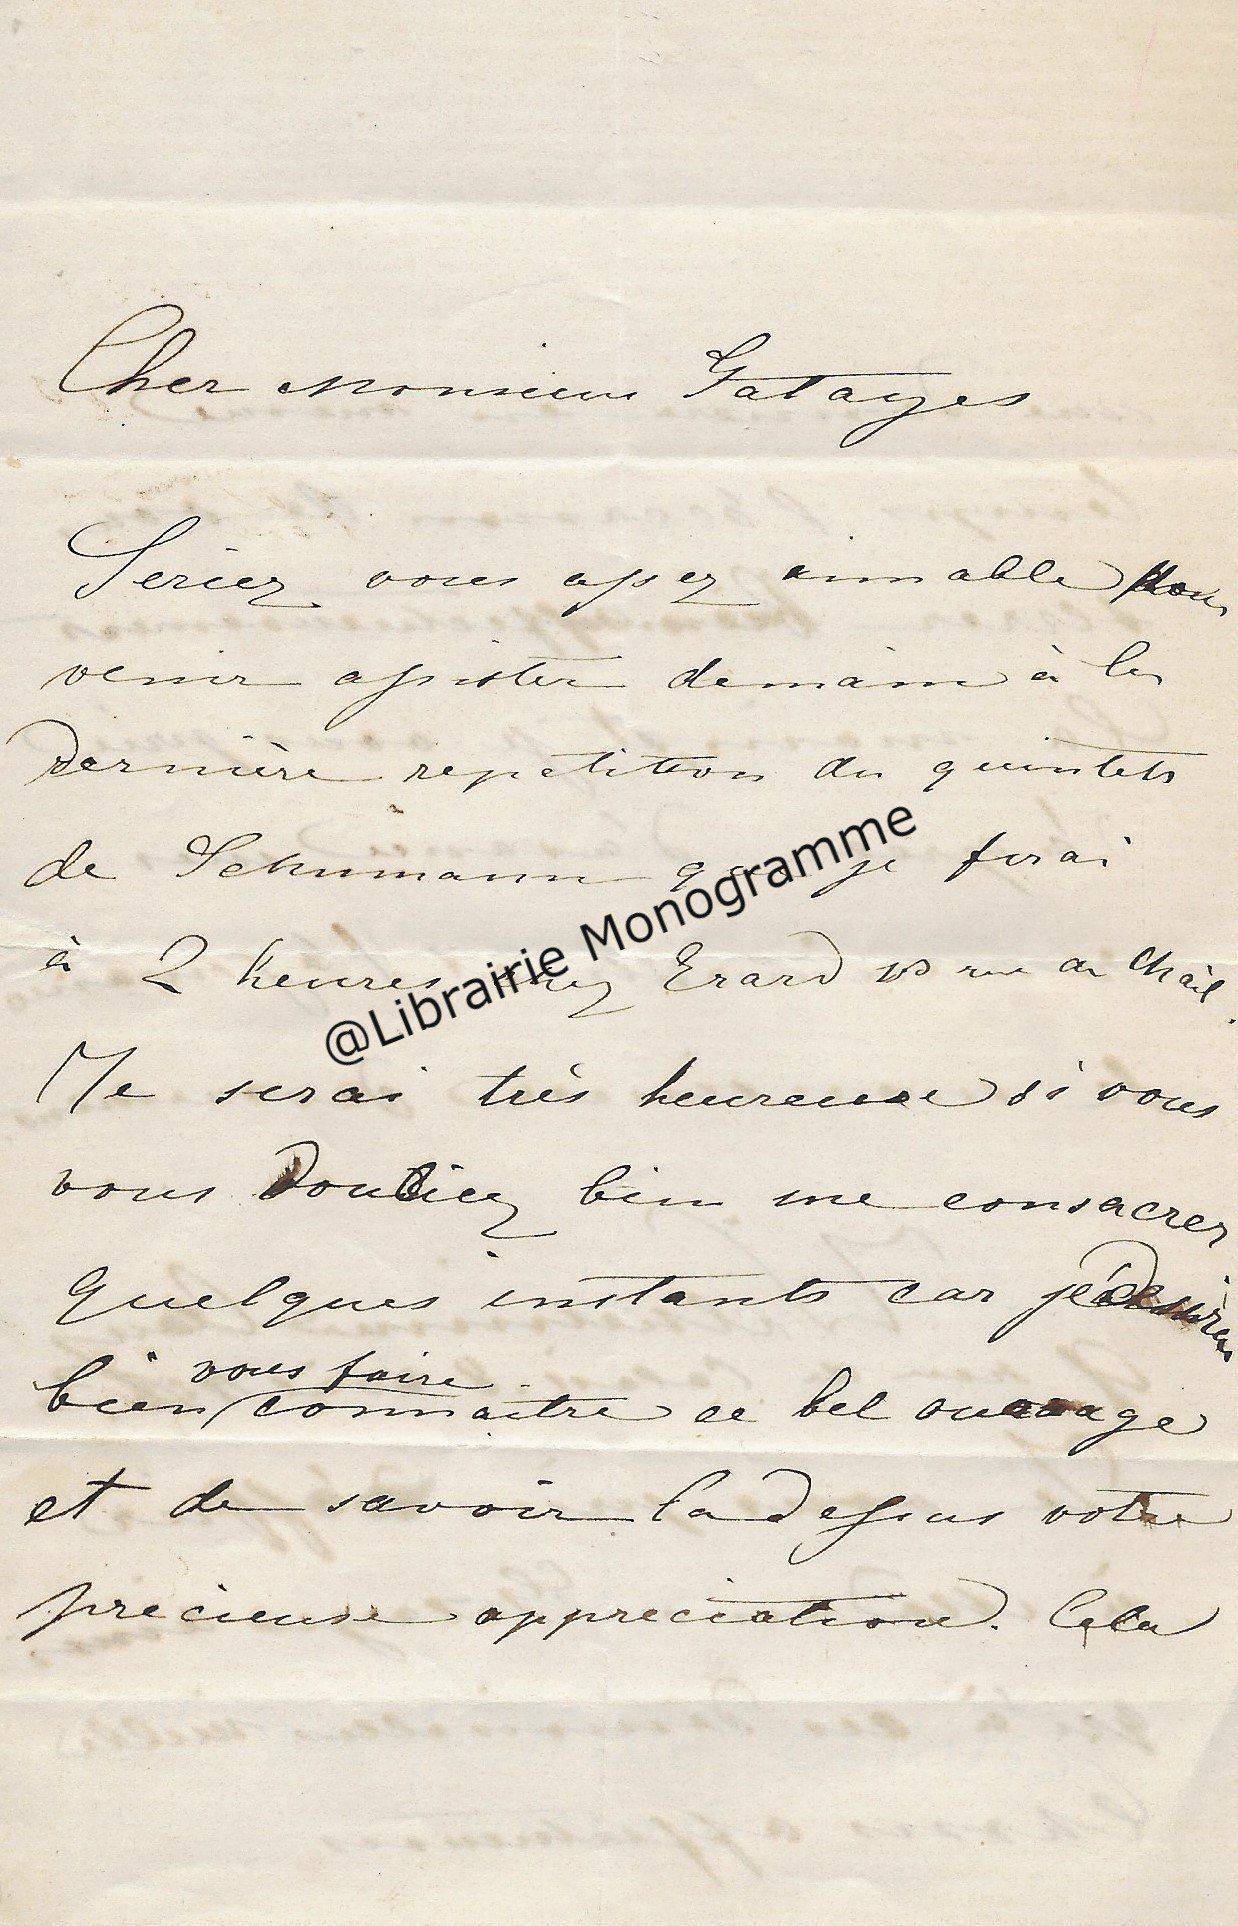 Cher Monsieur Gatayes
Seriez vous assez aimable pour
venir assister demain à la
dernière repetition du quintets
de Schumann que je ferai
à 2 heures chez Erard 13 rue du Mail.
@Librairie Monogramme
Je serai très heureuse si vous
vous vouliez bien me consacrer
quelques instants car je désire
bien vous faire connaitre ce bel ouvrage
et de savoir la dessus votre
precieuse appreciation. Cela